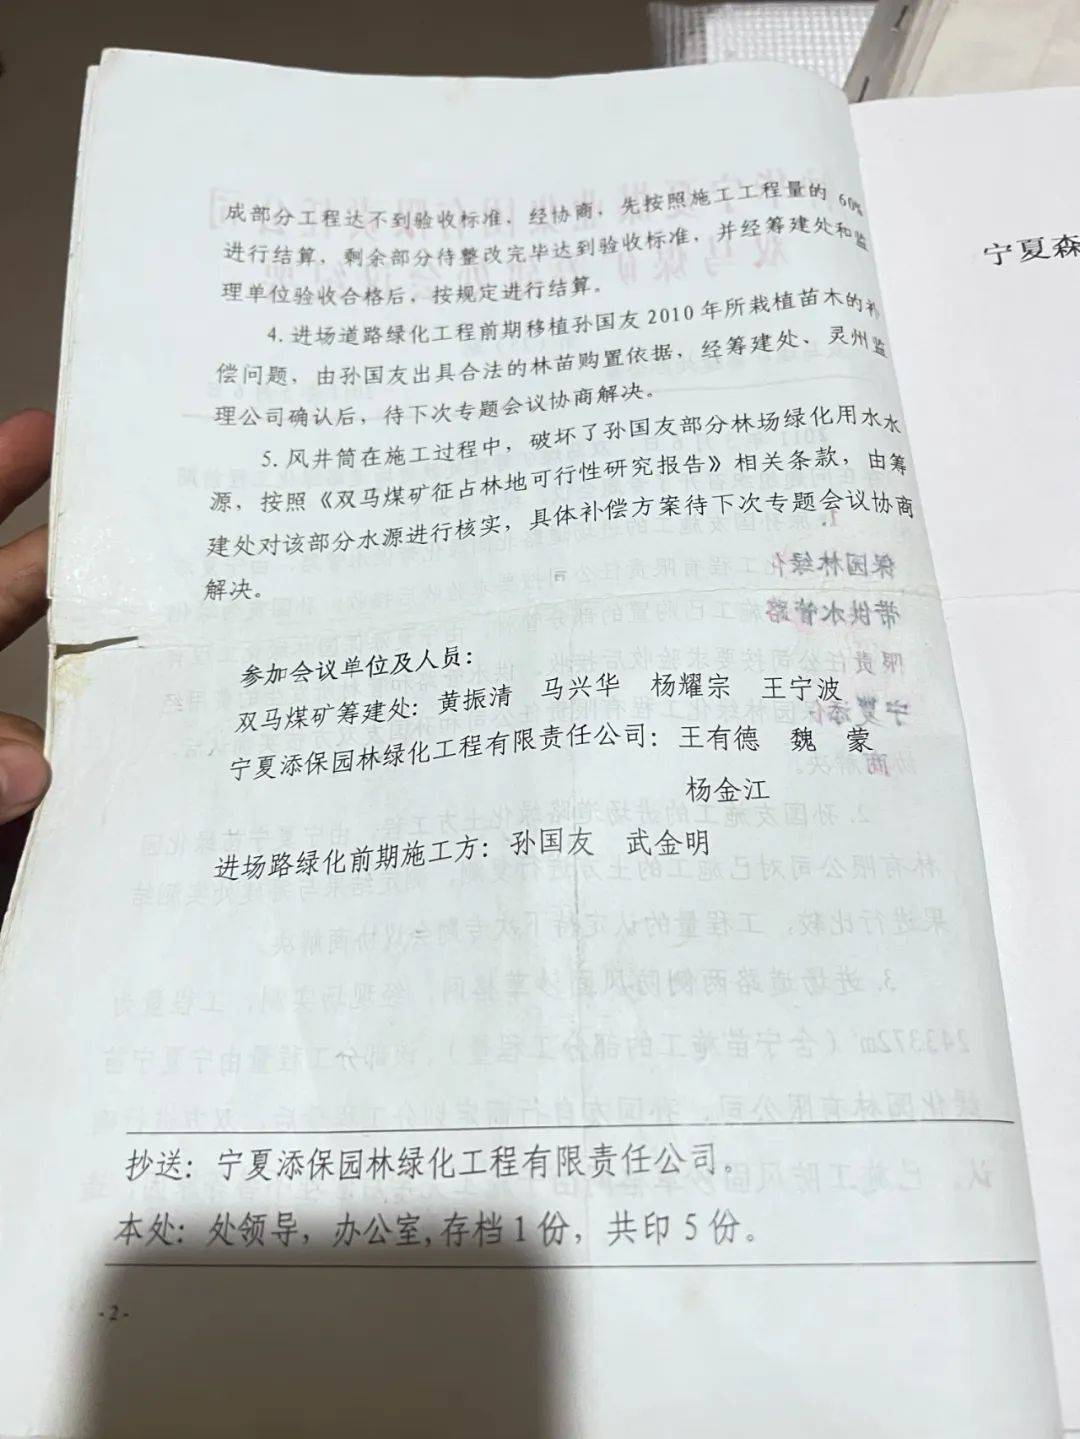 成部分工程达不到验收标准，经协商，先按照施工工程量的 60%
进行结算，剩余部分待整改完毕达到验收标准，并经筹建处和监
理单位验收合格后，按规定进行结算。
4. 进场道路绿化工程前期移植孙国友 2010 年所栽植苗木的补
偿问题，由孙国友出具合法的林苗购置依据，经筹建处、灵州监
理公司确认后，待下次专题会议协商解决。
5. 风井筒在施工过程中，破坏了孙国友部分林场绿化用水水
源，按照《双马煤矿征占林地可行性研究报告》相关条款，由筹
建处对该部分水源进行核实，具体补偿方案待下次专题会议协商
解决。
参加会议单位及人员：
双马煤矿筹建处：黄振清 马兴华 杨耀宗 王宁波
宁夏添保园林绿化工程有限责任公司：王有德 魏 蒙
杨金江
进场路绿化前期施工方：孙国友 武金明
抄送：宁夏添保园林绿化工程有限责任公司。
本处：处领导，办公室,存档 1 份，共印 5 份。
-2-
宁夏森